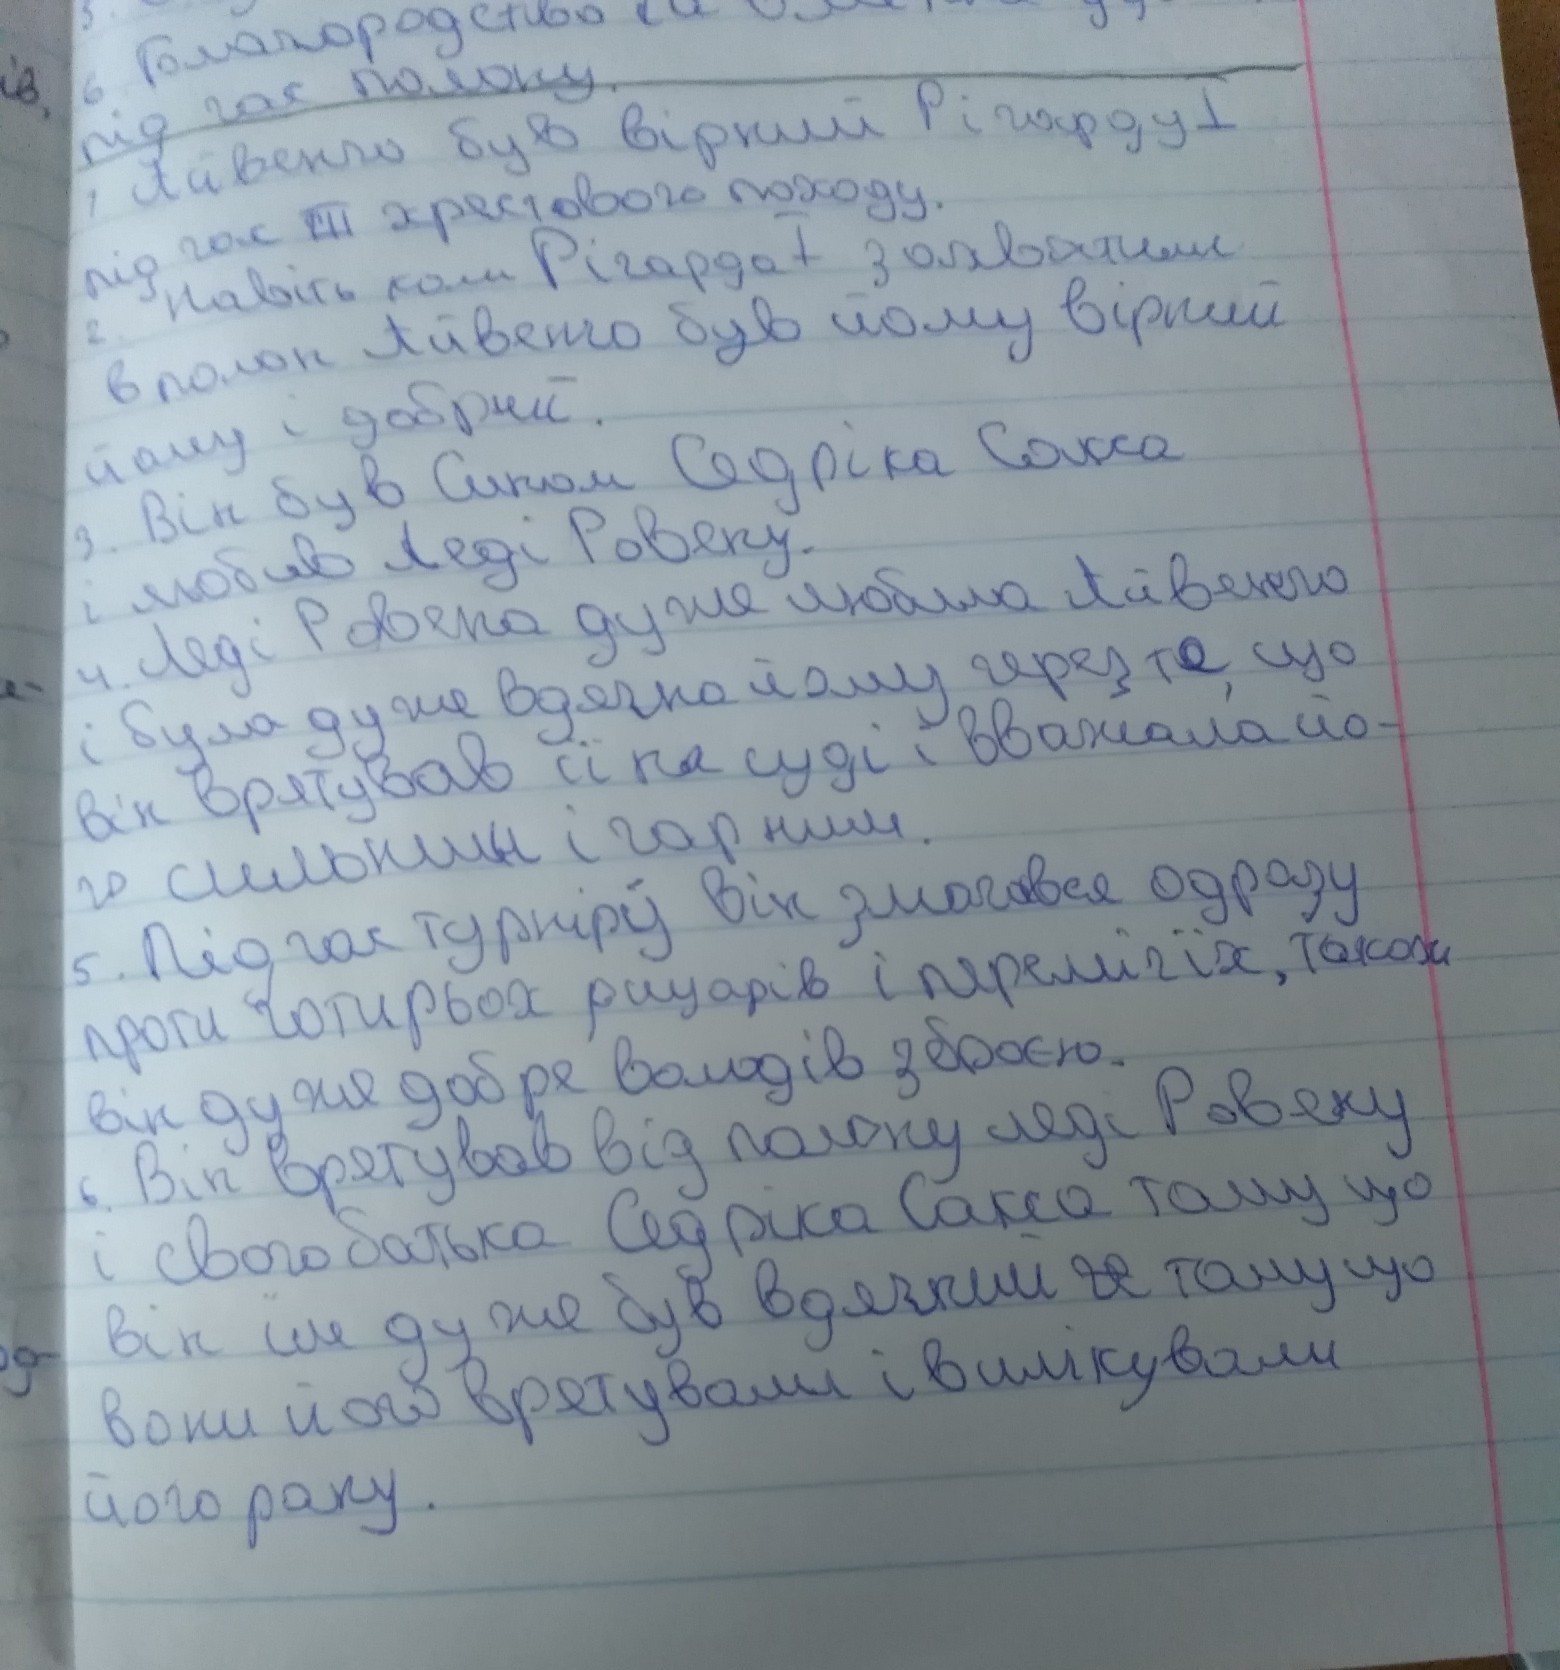 6 Благородство та
під час полону.
1 Айвенго був вірний Річарду I
під час III хрестового походу.
2. Навіть коли Річарда I захватили
в полон Айвенго був йому вірний
йому і добрий.
3. Він був Сином Седріка Сакса
і любив Леді Ровену.
4. Леді Ровена дуже любила Айвенго
і була дуже вдячна йому через те, що
він врятував її на суді і вважала йо-
го сильним і гарним.
5. Під час турніру він змагався одразу
проти чотирьох рицарів і переміг їх, також
він дуже добре володів зброєю.
6. Він врятував від полону леді Ровену
і свого батька Седріка Сакса тому що
він їм дуже був вдячний тому що
вони його врятували і вилікували
його рану.